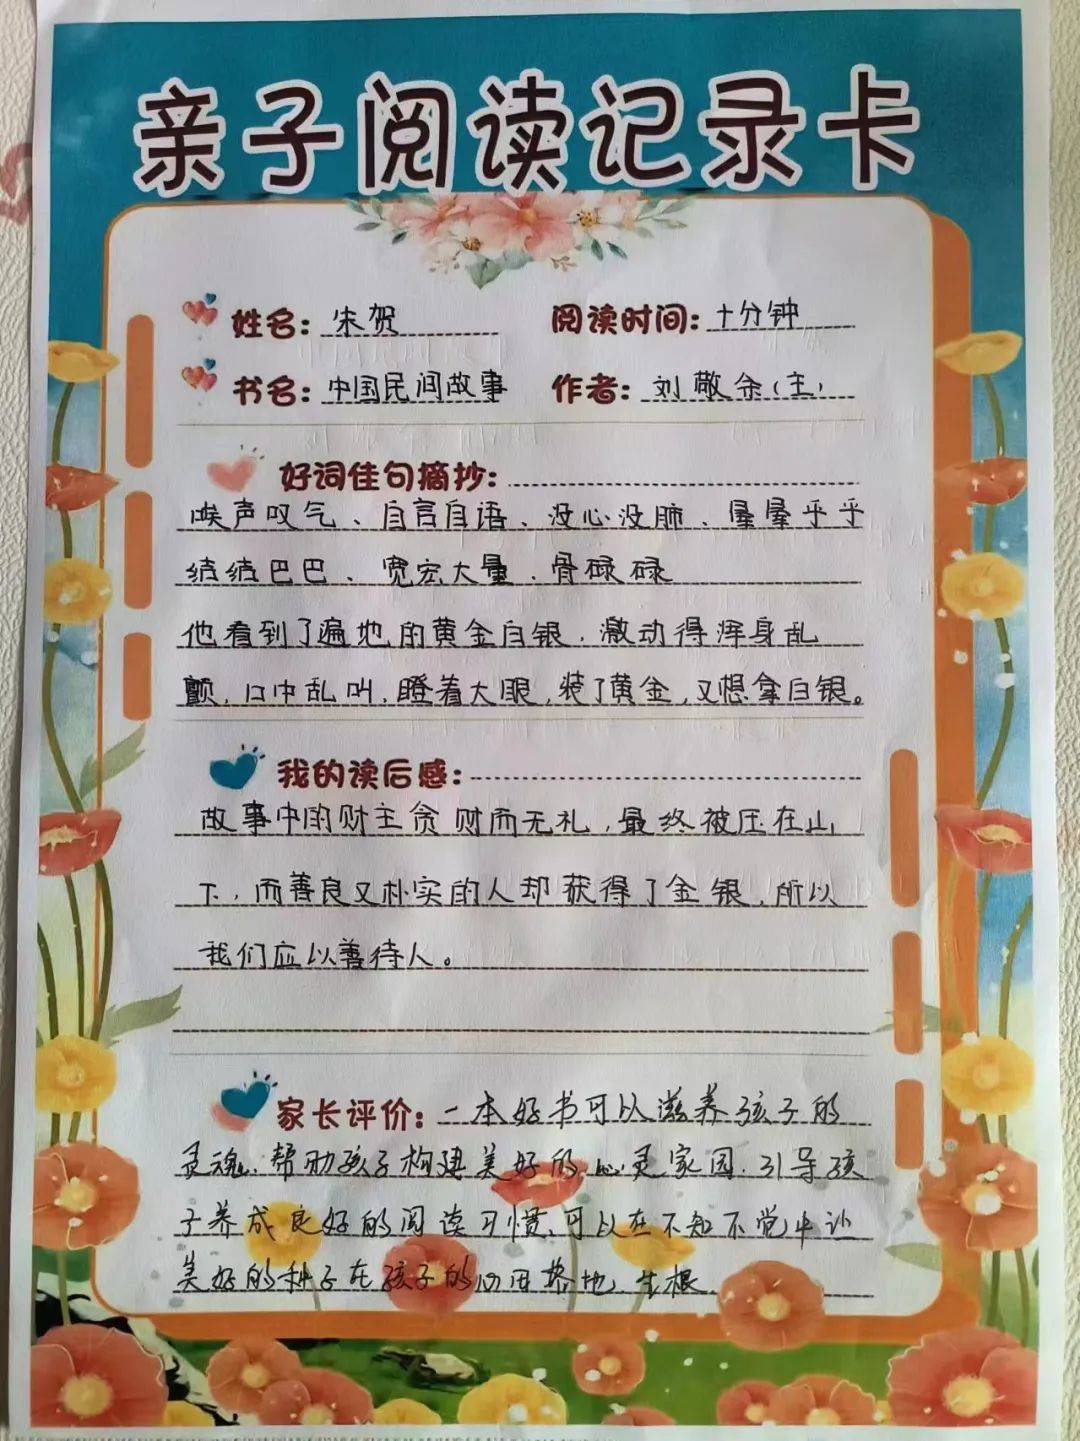 亲子阅读记录卡
姓名: 朱贺 阅读时间: 十分钟
书名: 中国民间故事 作者: 刘敬余(主)
好词佳句摘抄:
唉声叹气、自言自语、没心没肺、晕晕乎乎
结结巴巴、宽宏大量、骨碌碌
他看到了遍地的黄金白银,激动得浑身乱
颤,口中乱叫,瞪着大眼,装了黄金,又想拿白银。
我的读后感:
故事中的财主贪财而无礼,最终被压在山
下,而善良又朴实的人却获得了金银,所以
我们应以善待人。
家长评价: 一本好书可以滋养孩子的
灵魂,帮助孩子构建美好的心灵家园,引导孩
子养成良好的阅读习惯,可以在不知不觉中让
美好的种子在孩子的心田落地、生根。